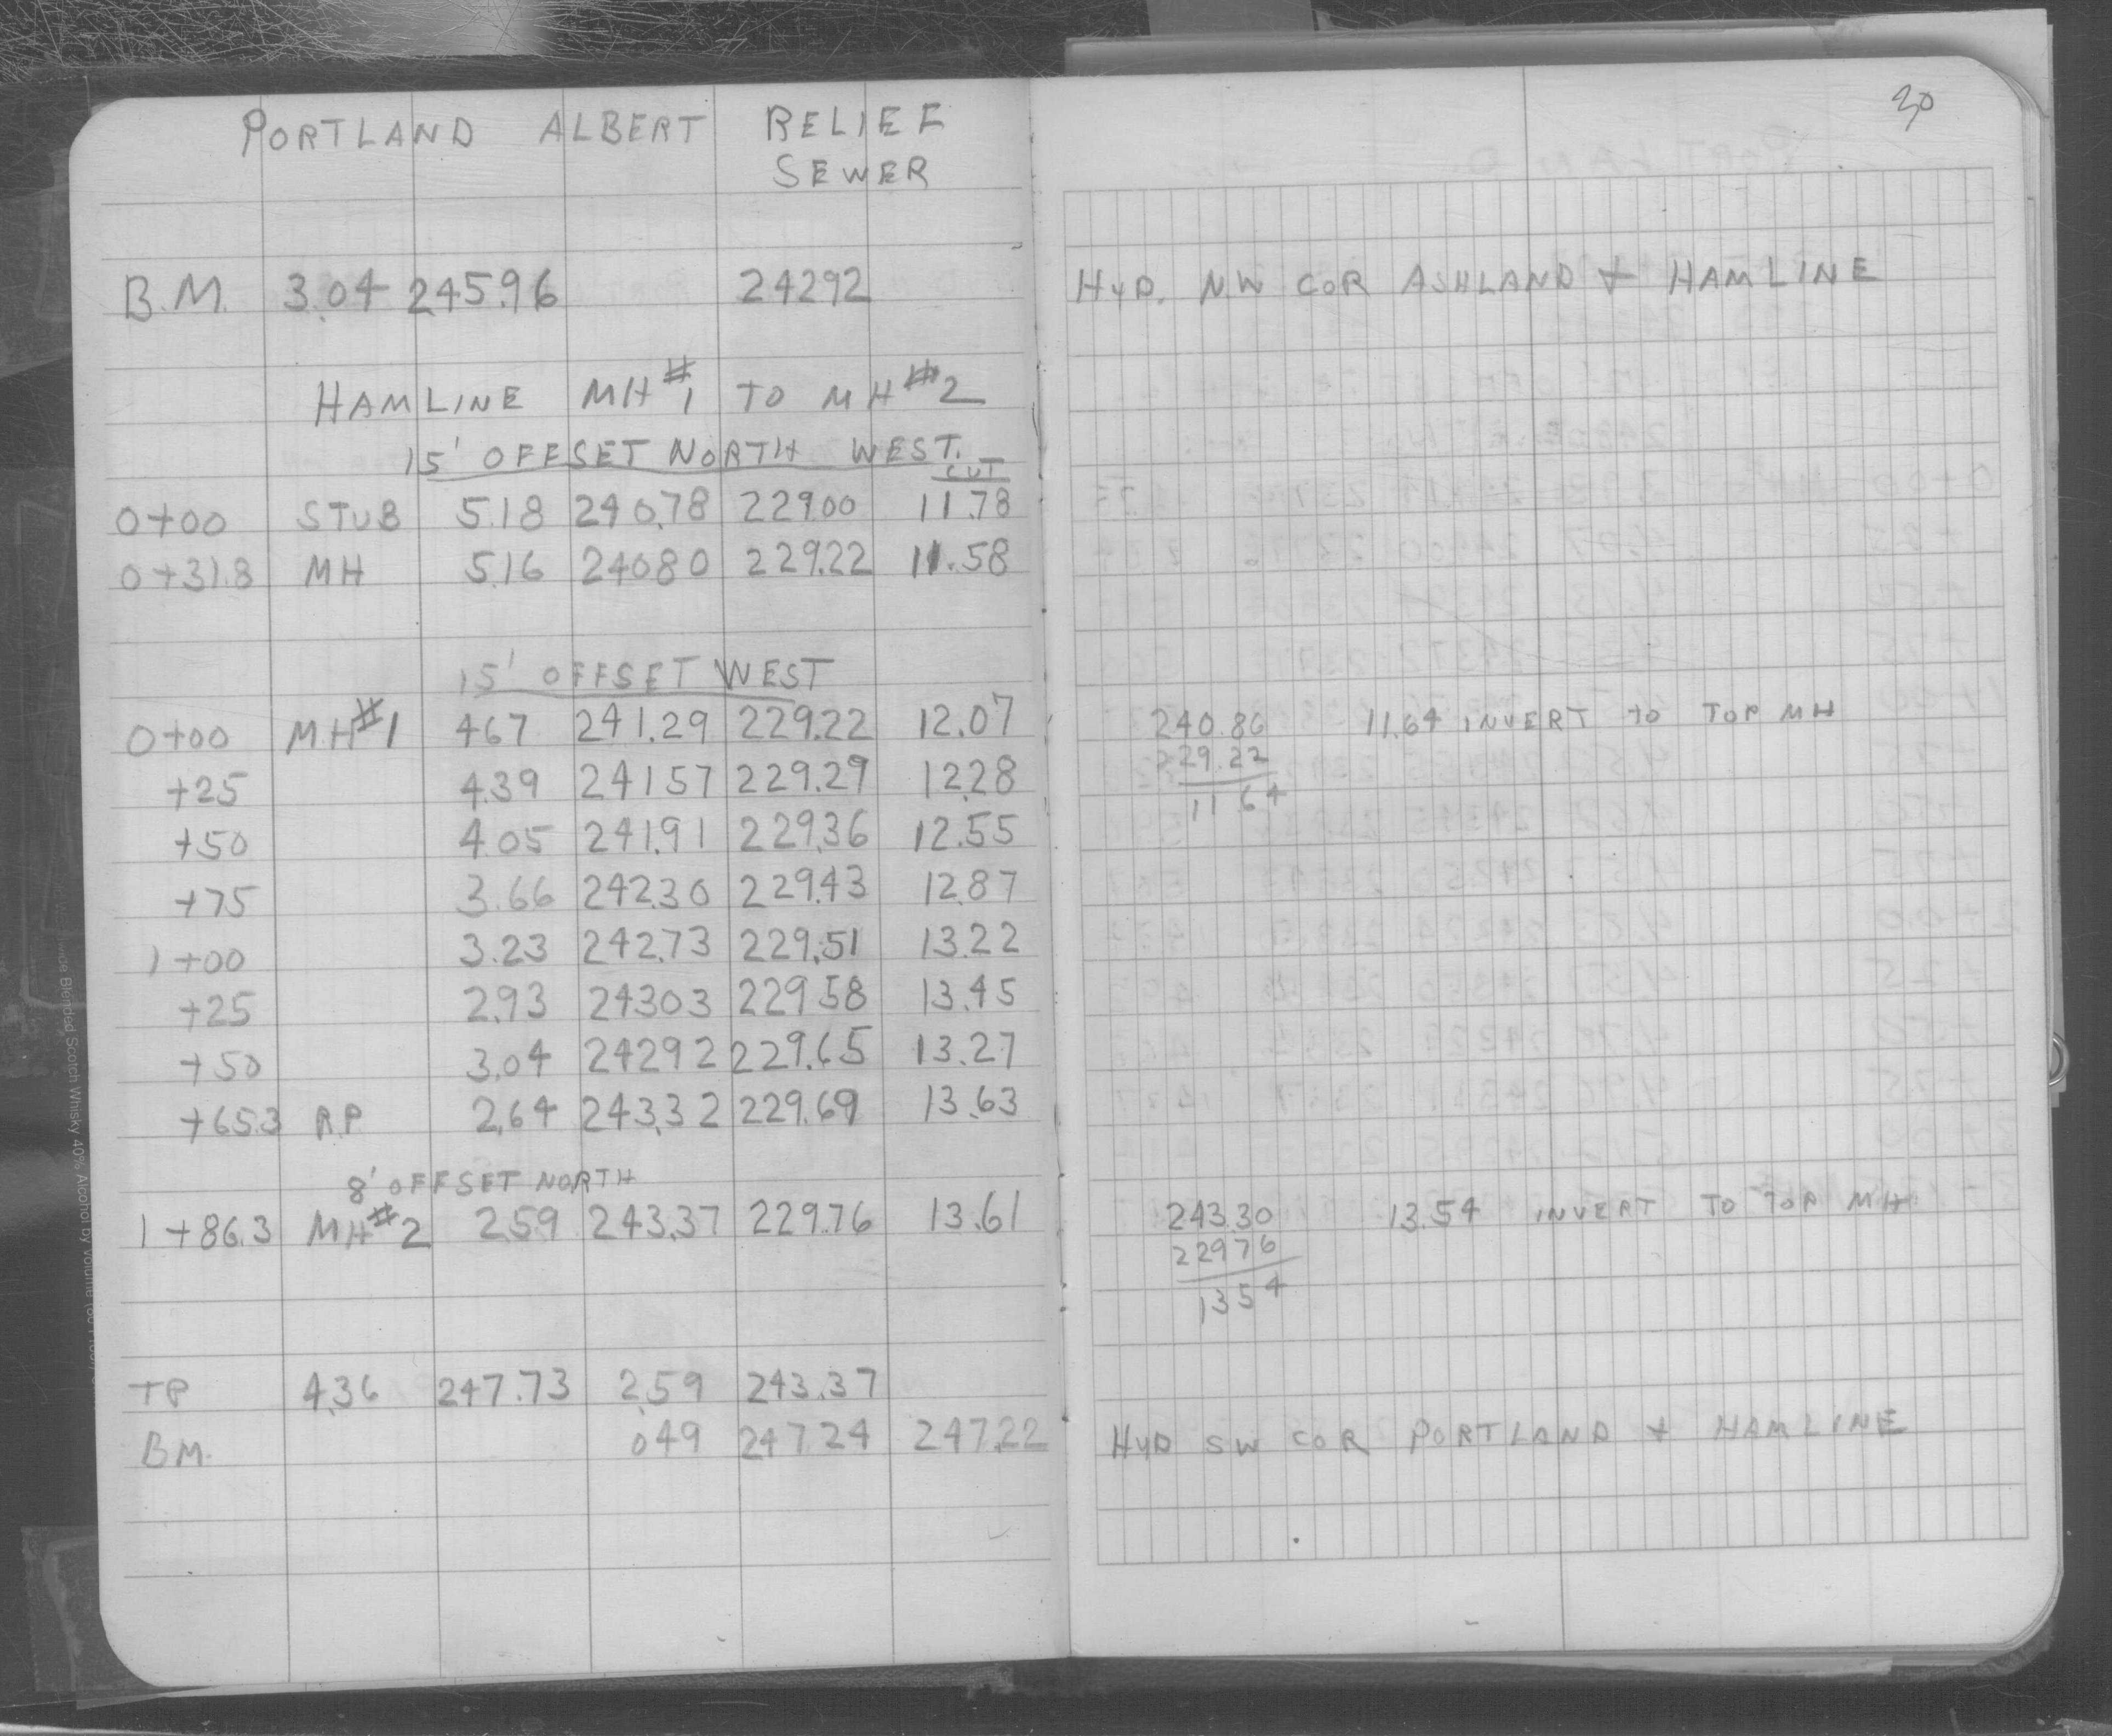 PORTLAND ALBERT RELIEF
SEWER
30
B.M. 3.04 245.96 242.92 HYD. NW COR ASHLAND & HAMLINE
HAMLINE MH #1 TO MH #2
15' OFFSET NORTH WEST.
CUT
0+00 STUB 5.18 240.78 229.00 11.78
0+31.8 MH 5.16 240.80 229.22 11.58
15' OFFSET WEST
0+00 MH #1 4.67 241.29 229.22 12.07 240.86 11.64 INVERT TO TOP MH
229.22
+25 4.39 241.57 229.29 12.28 11 64
+50 4.05 241.91 229.36 12.55
+75 3.66 242.30 229.43 12.87
1+00 3.23 242.73 229.51 13.22
+25 2.93 243.03 229.58 13.45
+50 3.04 242.92 229.65 13.27
+65.3 RP 2.64 243.32 229.69 13.63
8' OFFSET NORTH
1+86.3 MH #2 2.59 243.37 229.76 13.61 243.30 13.54 INVERT TO TOP MH
229 76
13 54
TP 4.36 247.73 2.59 243.37
BM. 0.49 247.24 247.22 HYD SW COR PORTLAND & HAMLINE
Blended Scotch Whisky 40% Alcohol by Volume